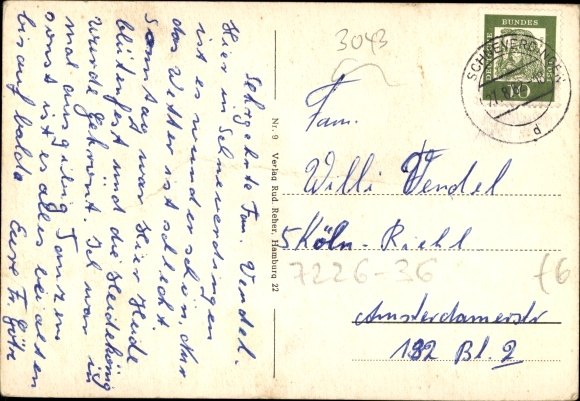 Sehrgehrte Fam. Vendel.
Hier in Schneverdingen
ist es wunderschön, nur
das Wetter ist schlecht
Sonntag war Hier Heide
blütenfest und die Heidekönig
wurde gekrönt. Ich war in
mal ausgibig Tanzen
sonst ist es alles bei alten
bis auf balde Eure Fr. Götz
Nr. 9 Verlag Rud. Reher, Hamburg 22
3043
DEUTSCHE BUNDES
10
SCHNEVERDINGEN
d
Fam.
Willi Vendel
5 Köln-Riehl
7226-36
Amsterdamerstr
192 Bl. 2